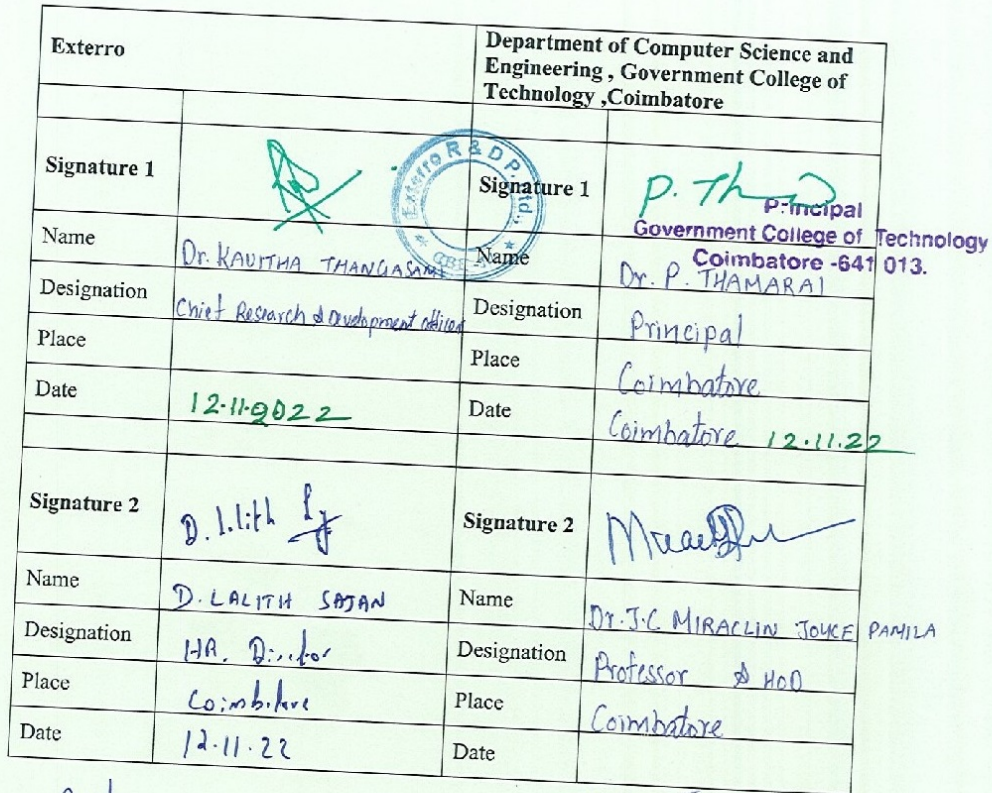 Exterro
Department of Computer Science and
Engineering , Government College of
Technology ,Coimbatore
Signature 1
Exterro R & D P. Ltd.,
Signature 1
P. Th
Principal
Government College of Technology
Coimbatore -641 013.
Name
Dr. KAVITHA THANGASAMI
Name
Dr. P. THAMARAI
Designation
Chief Research & Development officer
Designation
Principal
Place
Place
Coimbatore
Date
12.11.2022
Date
Coimbatore 12.11.22
Signature 2
D. Lalith
Signature 2
Name
D. LALITH SAJAN
Name
Dr. J.C MIRACLIN JOYCE PAMILA
Designation
HR. Director
Designation
Professor & HOD
Place
Coimbatore
Place
Coimbatore
Date
12.11.22
Date